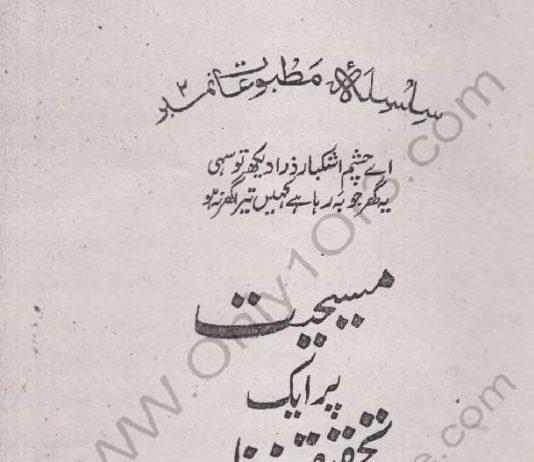 سلسلۂ مطبوعات نمبر ۳
اے چشم اشکبار ذرا دیکھ تو سہی
یہ گھر جو بہ رہا ہے کہیں تیرا گھر نہ ہو
مسیحیت
پر ایک
WWW.Only1Or3.com
e.com